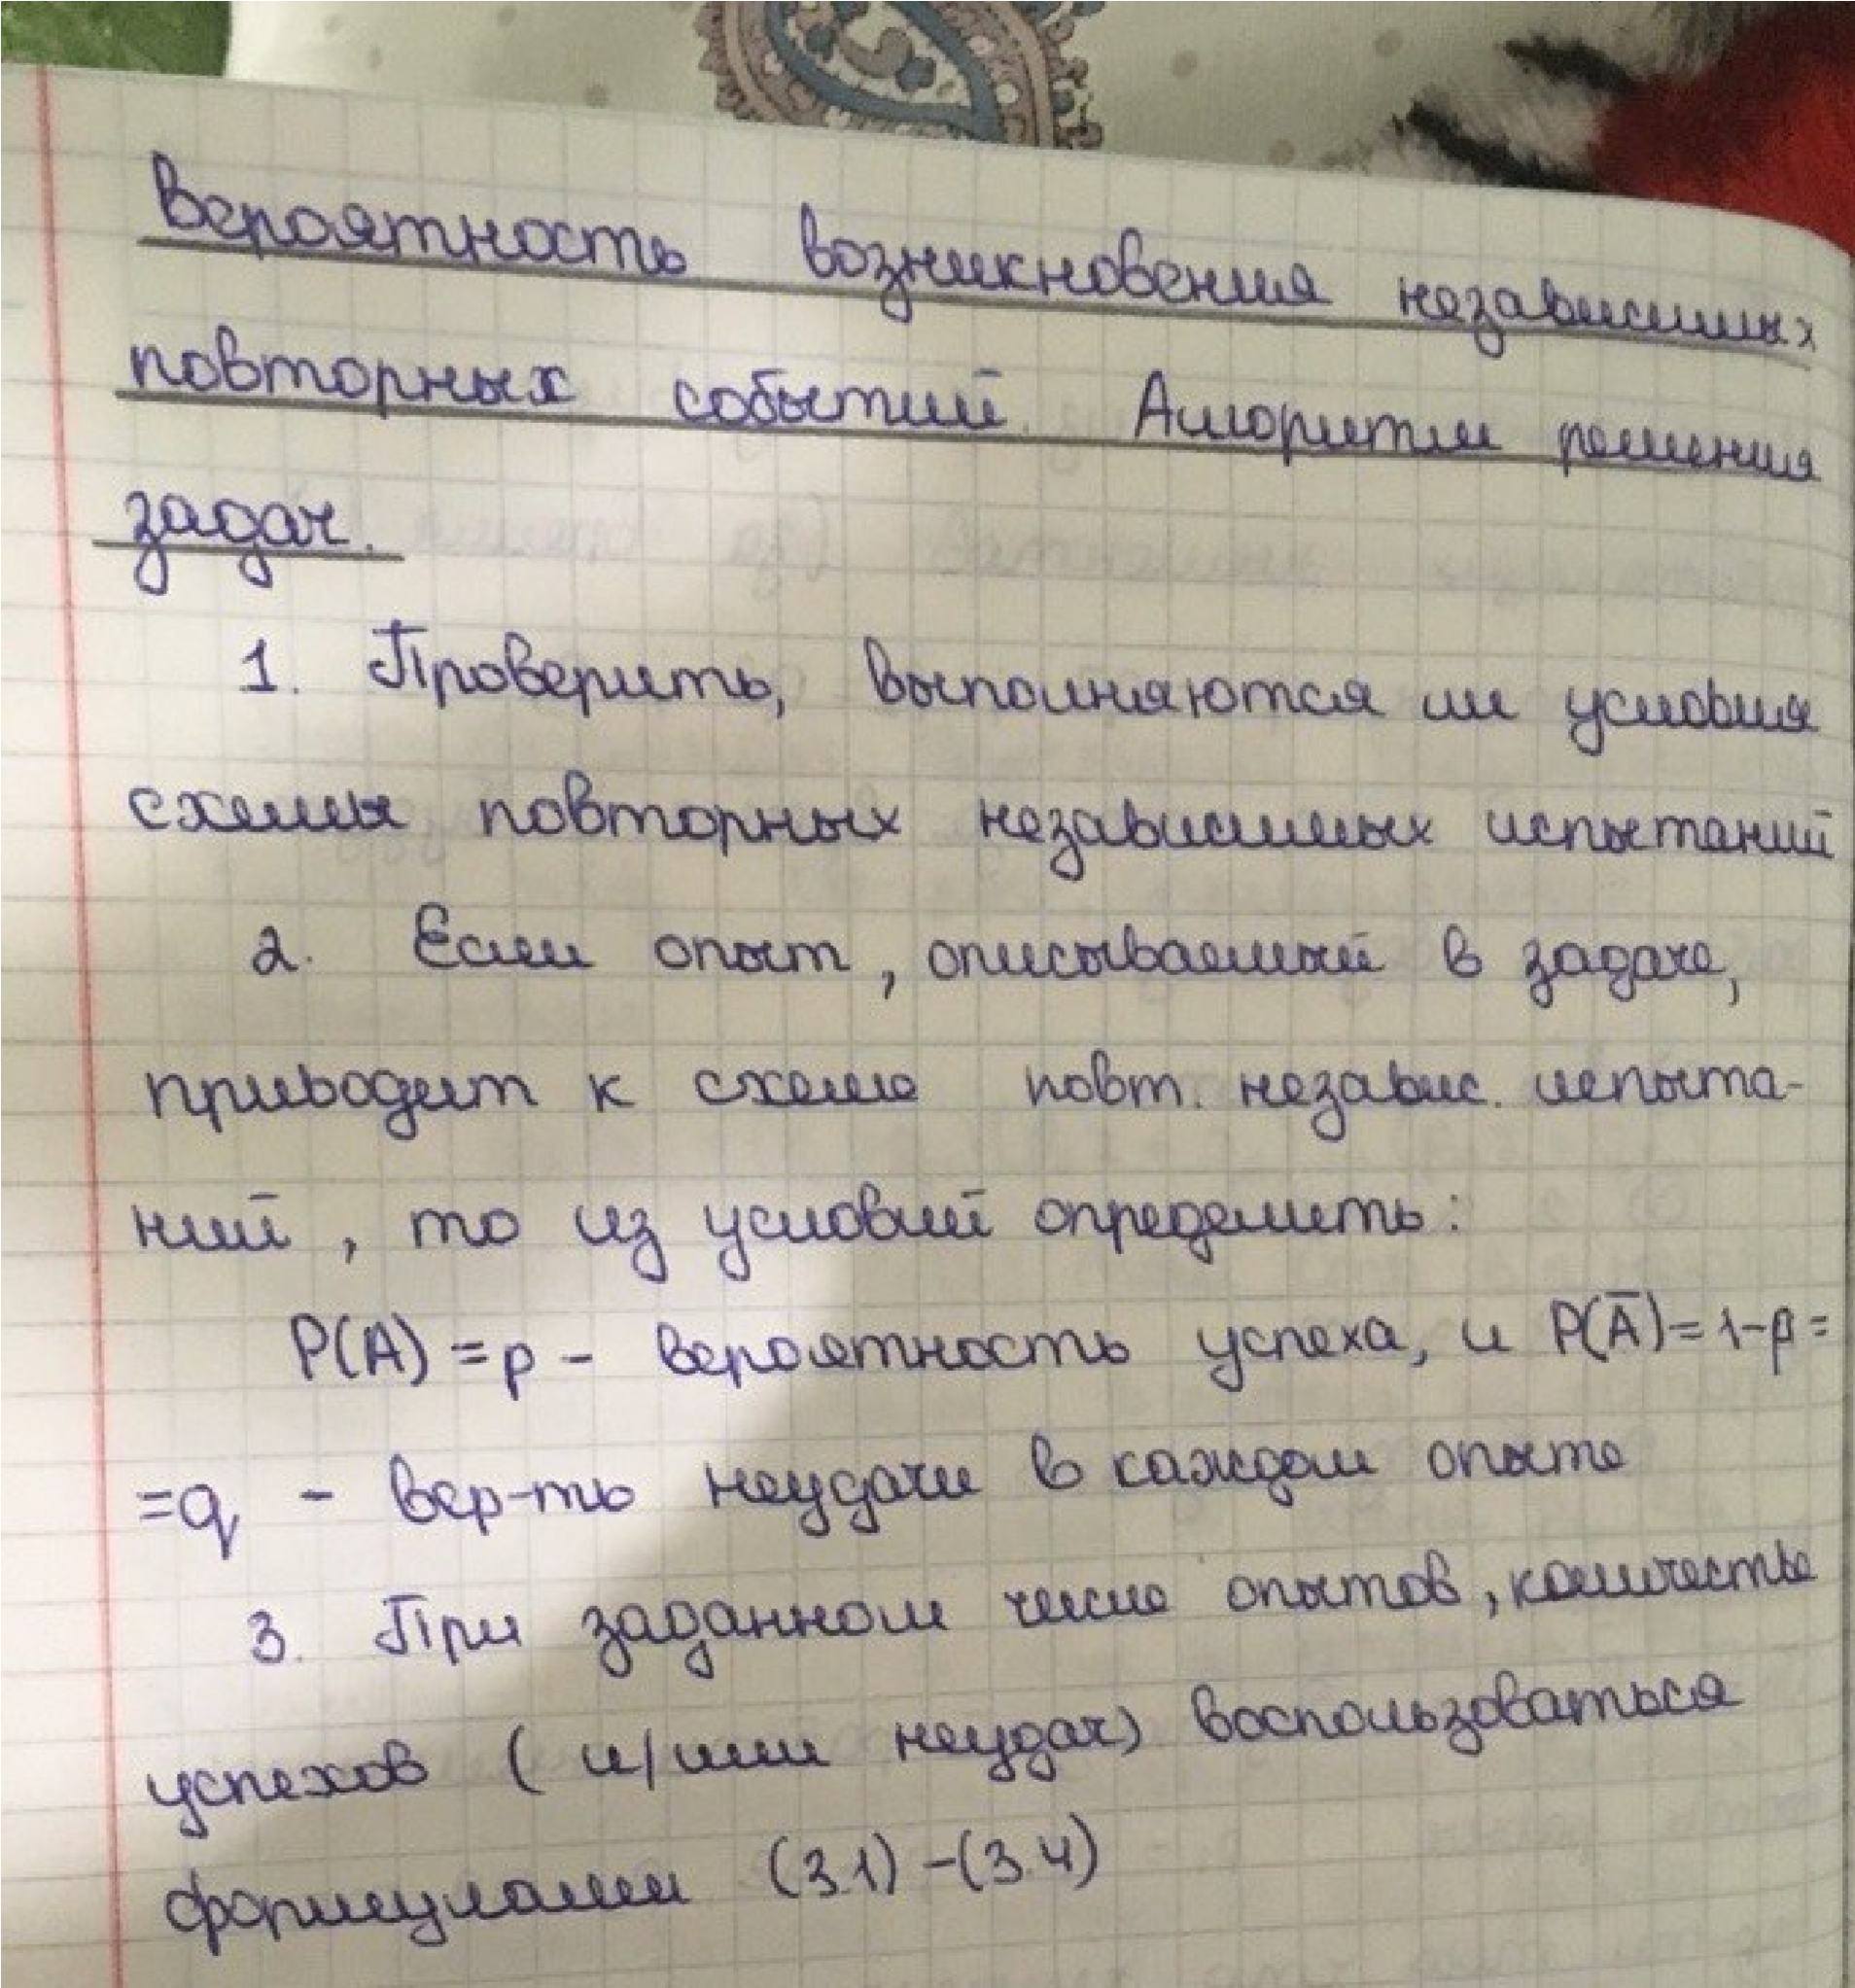 Вероятность возникновения независимых
повторных событий. Алгоритм решения
задач.
1. Проверить, выполняются ли условия
схемы повторных независимых испытаний
2. Если опыт, описываемый в задаче,
приводит к схеме повт. независ. испыта-
ний, то из условий определить:
P(A) = p - вероятность успеха, и P(Ā) = 1-p =
=q - вер-ть неудачи в каждом опыте
3. При заданном числе опытов, количестве
успехов (и/или неудач) воспользоваться
формулами (3.1) - (3.4)